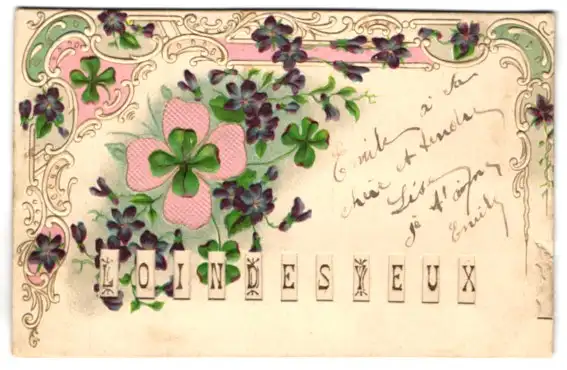 Emile à sa
chère et tendre
Lise
je t'aime
Emile
LOIN DES YEUX